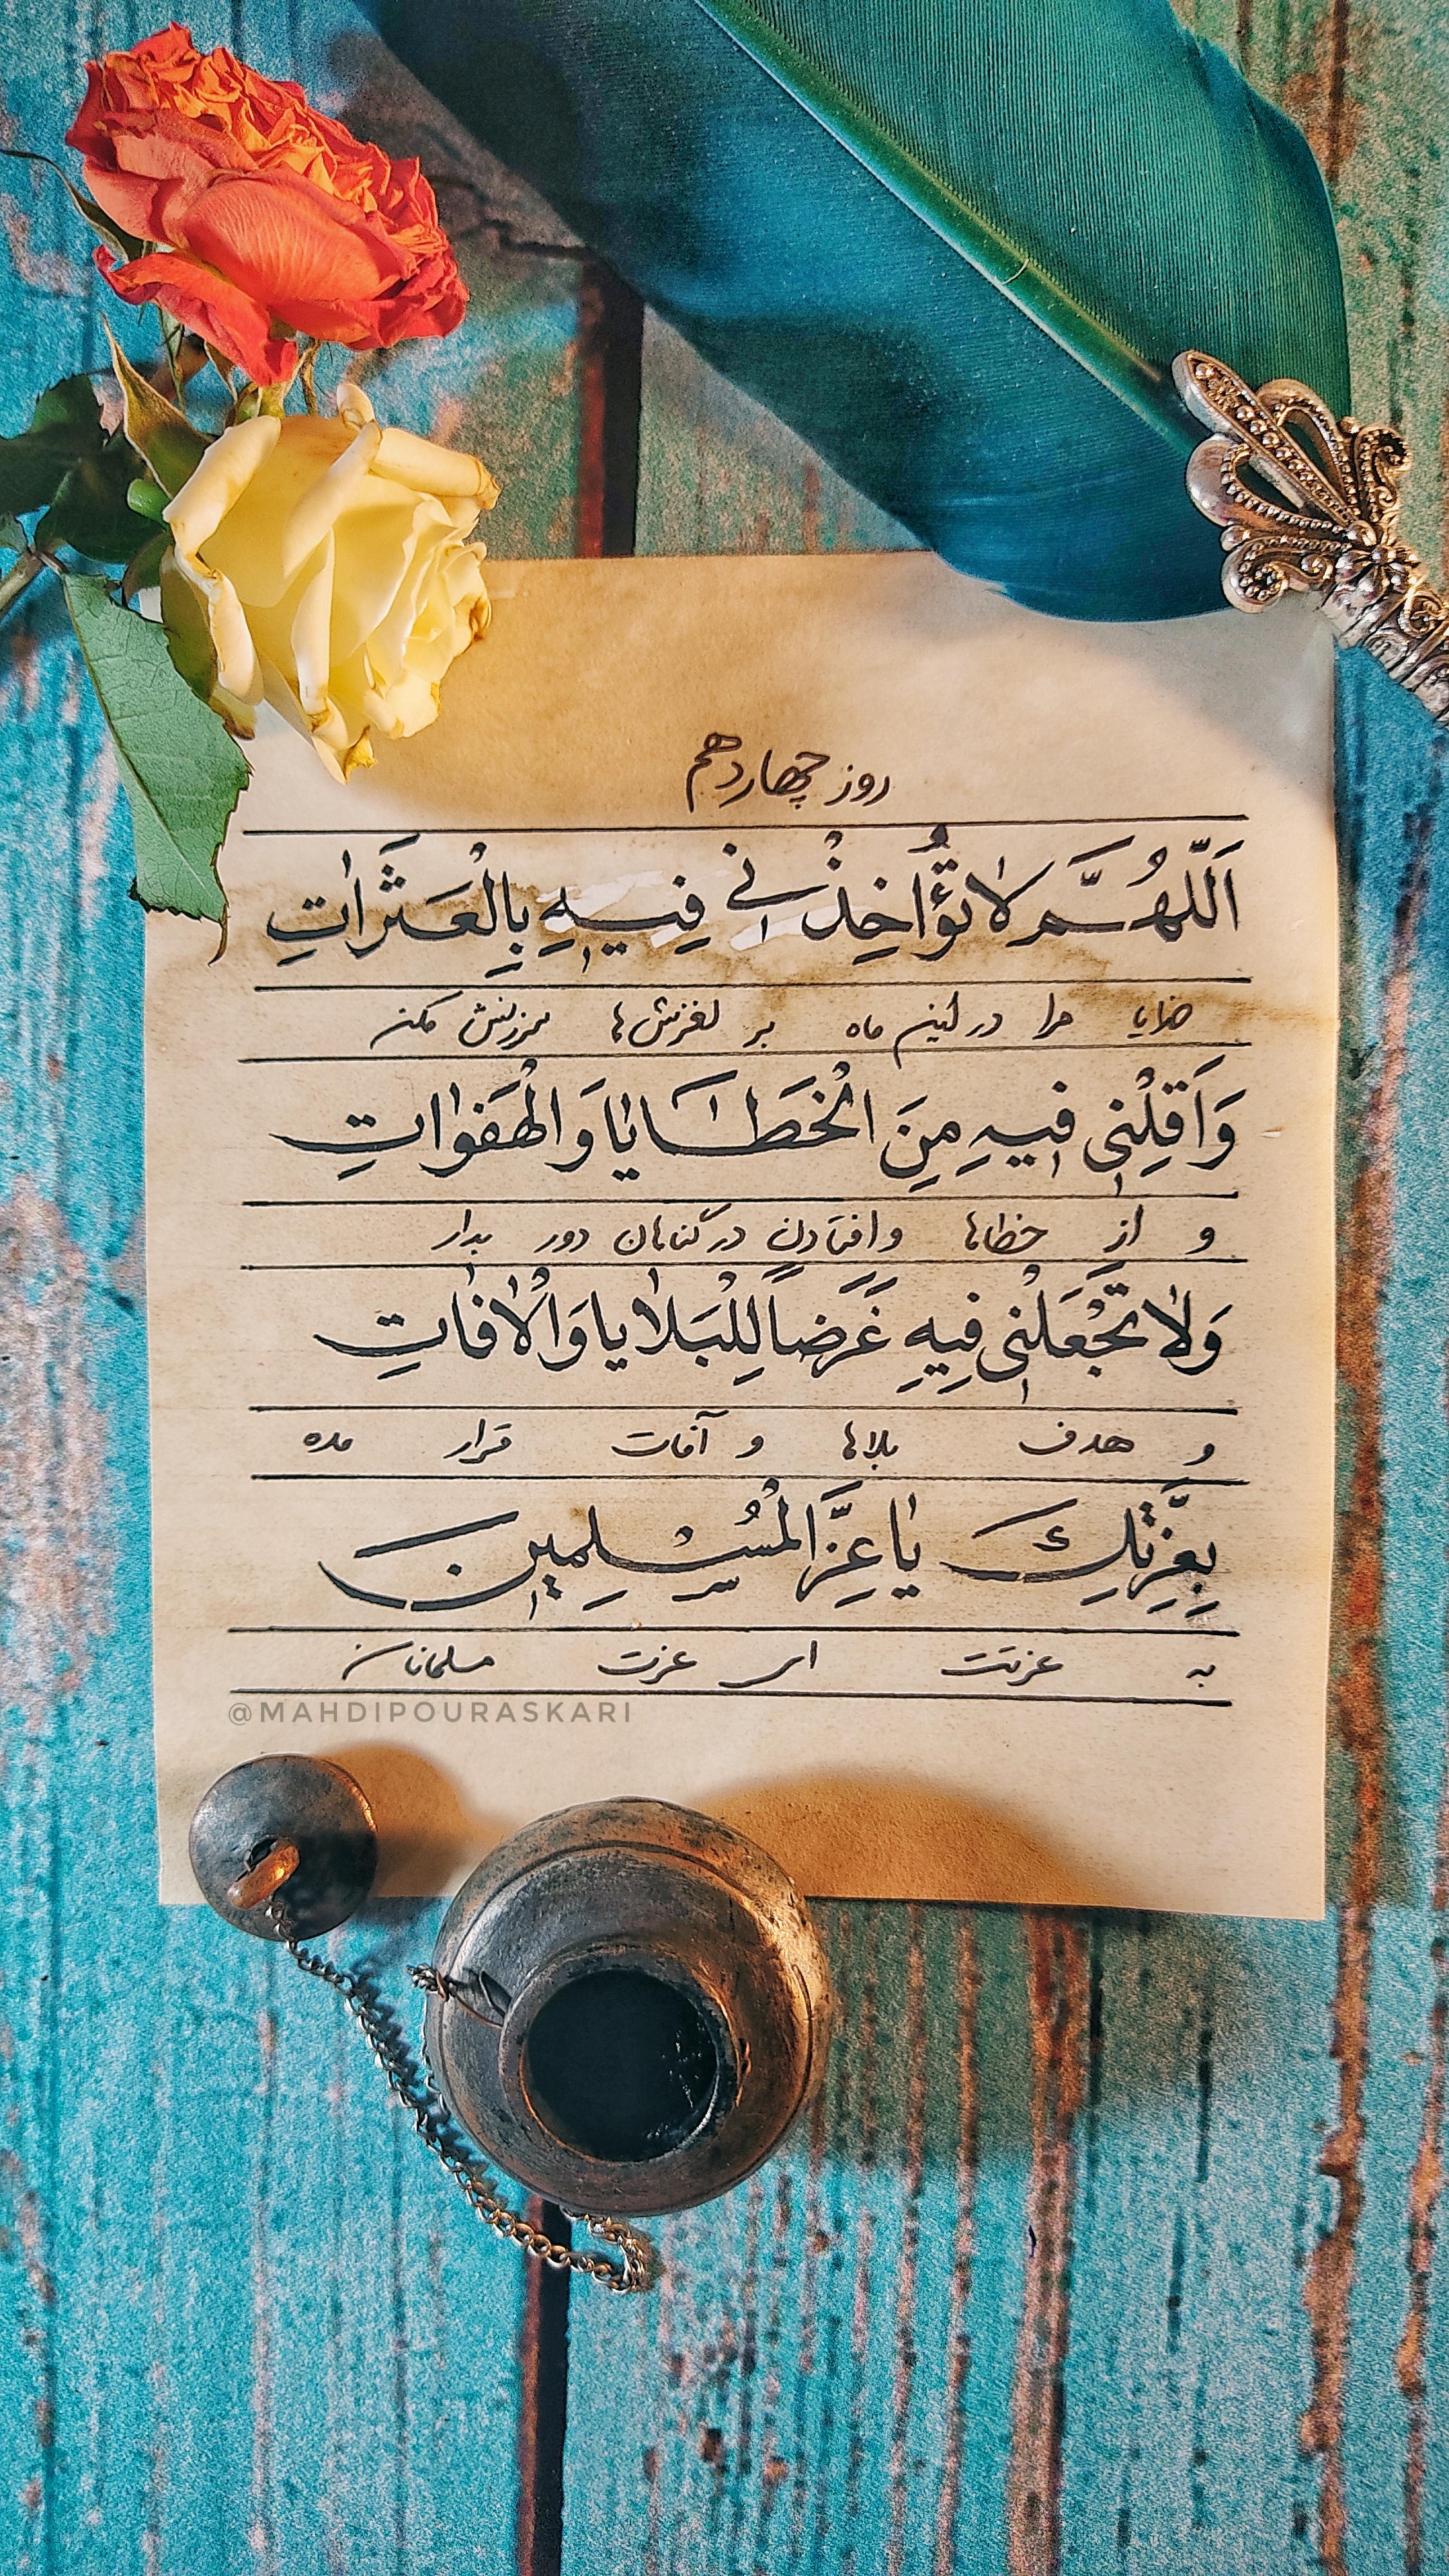 روز چهاردهم
اَللّهُمَّ لاتُؤاخِذْنی فِیهِ بِالْعَثَراتِ
خدایا مرا در این ماه بر لغزش‌ها سرزنش مکن
وَاَقِلْنی فیهِ مِنَ الْخَطایا وَالْهَفَواتِ
و از خطاها و افتادن در گناهان دور بدار
وَلاتَجْعَلْنی فیهِ غَرَضاً لِلْبَلایا وَالْافاتِ
و هدف بلاها و آفات قرار مده
بِعِزَّتِكَ یاعِزَّ الْمُسْلِمینَ
به عزتت ای عزت مسلمانان
@MAHDIPOURASKARI